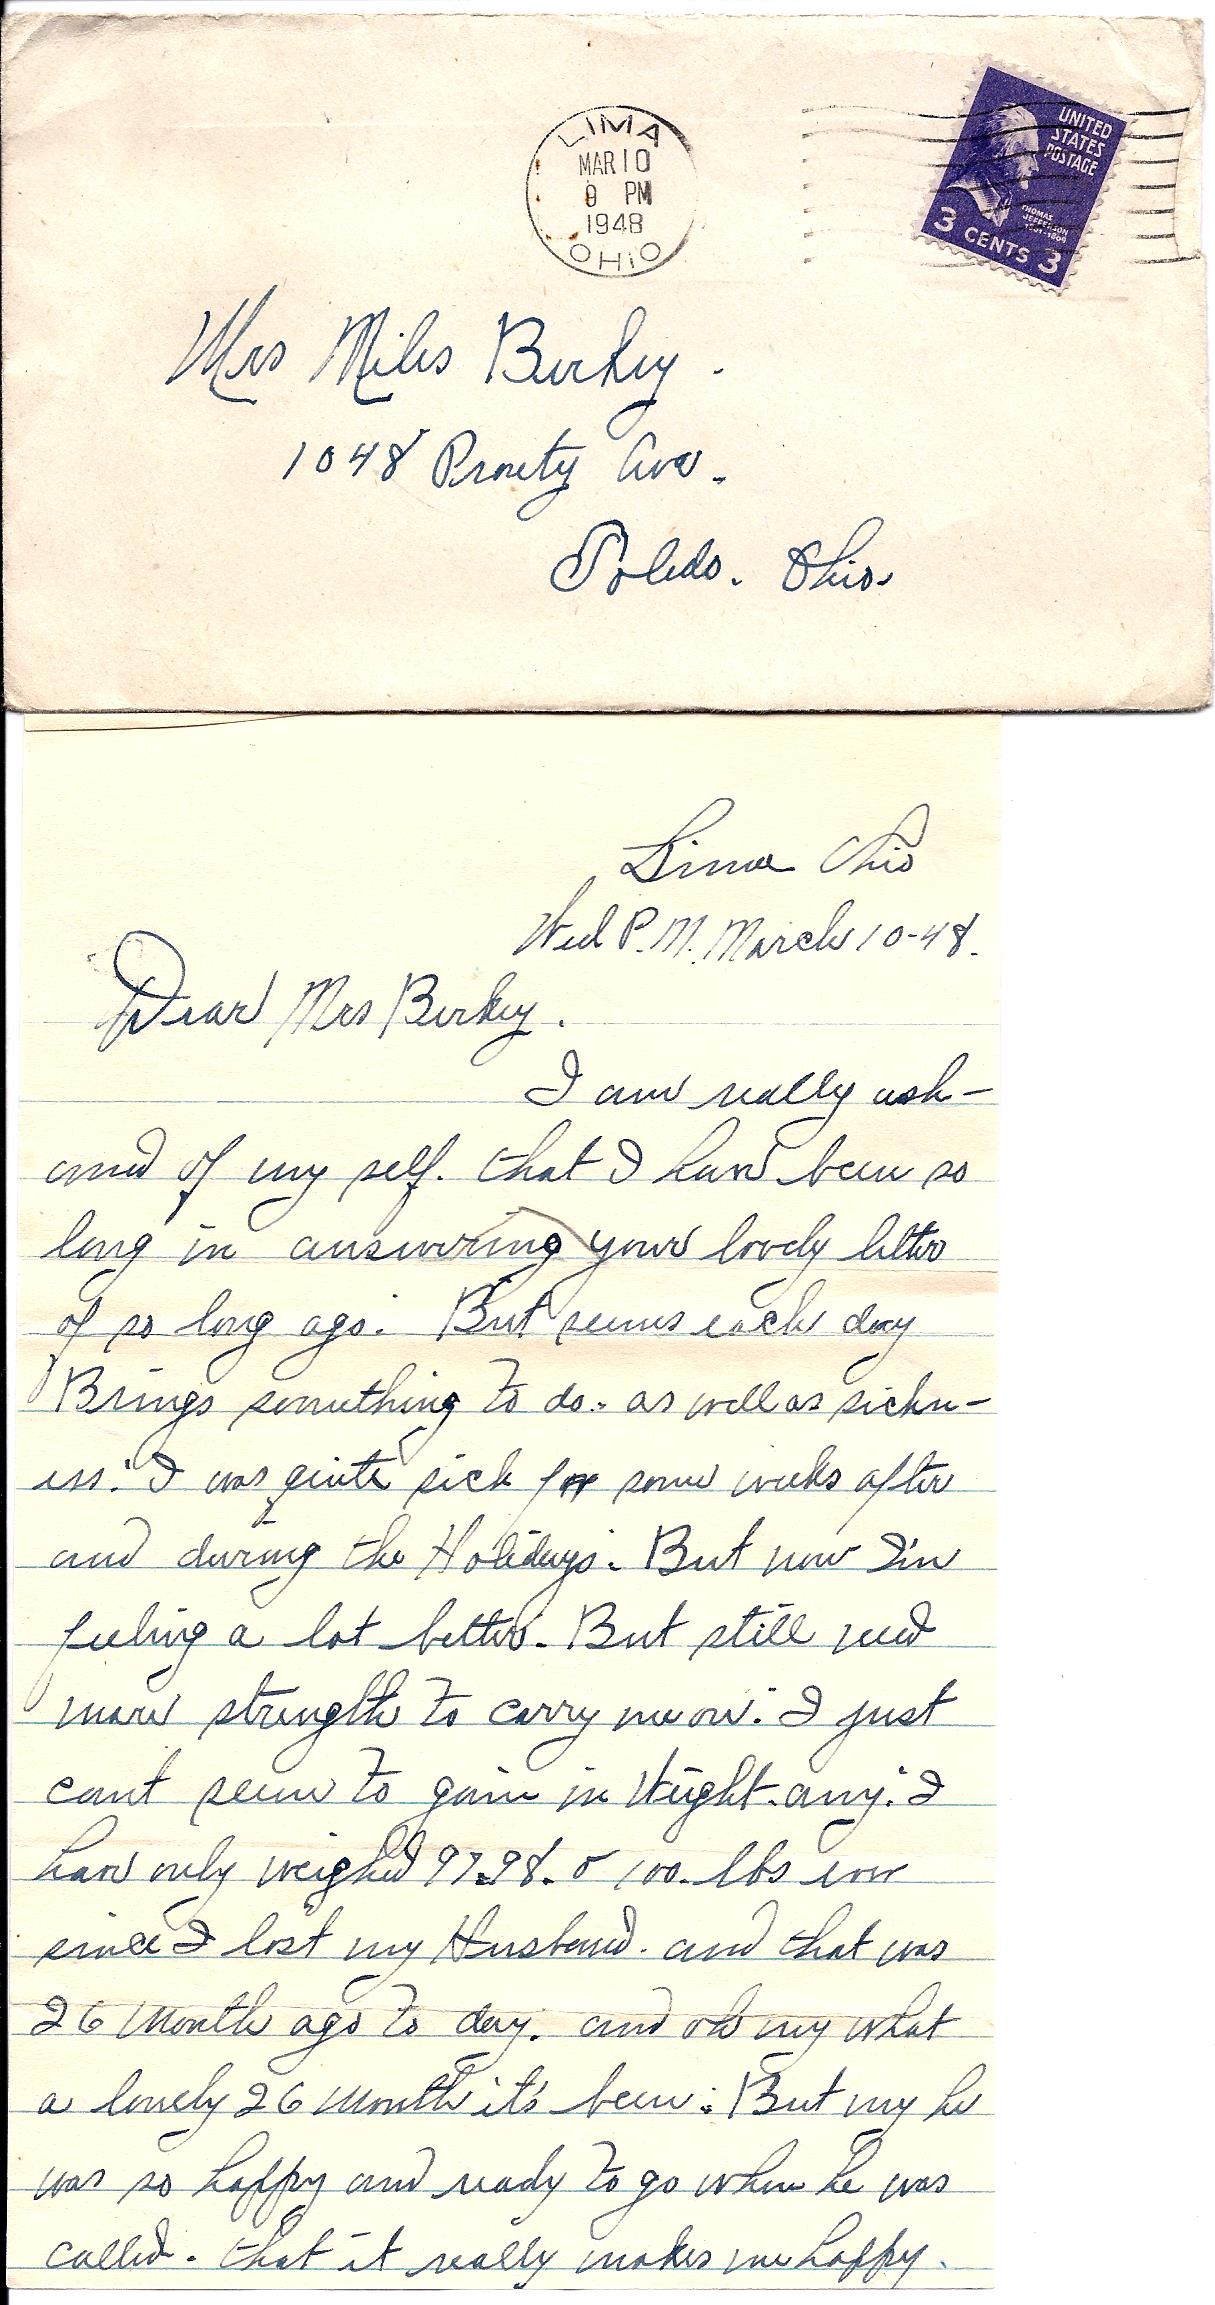 LIMA
MAR 10
9 PM
1948
OHIO
UNITED
STATES
POSTAGE
THOMAS
JEFFERSON
1801-1809
3 CENTS 3
Mrs Miles Burkey.
1048 Prouty Ave.
Toledo. Ohio.
Lima Ohio
Wed P.M. March 10-48.
Dear Mrs Burkey.
I am really ash-
amed of my self. that I have been so
long in answering your lovely letter
of so long ago. But seems each day
Brings something to do. as well as sickn-
ess. I was quite sick for some weeks after
and during the Holidays. But now I'm
feeling a lot better. But still need
more strength to carry me on. I just
cant seem to gain in Weight. any. I
have only weighed 97.98. or 100. lbs ever
since I lost my Husband. and that was
26 Month ago to day. and oh my what
a lonely 26 Month it's been. But my he
was so happy and ready to go when he was
called. that it really makes me happy.